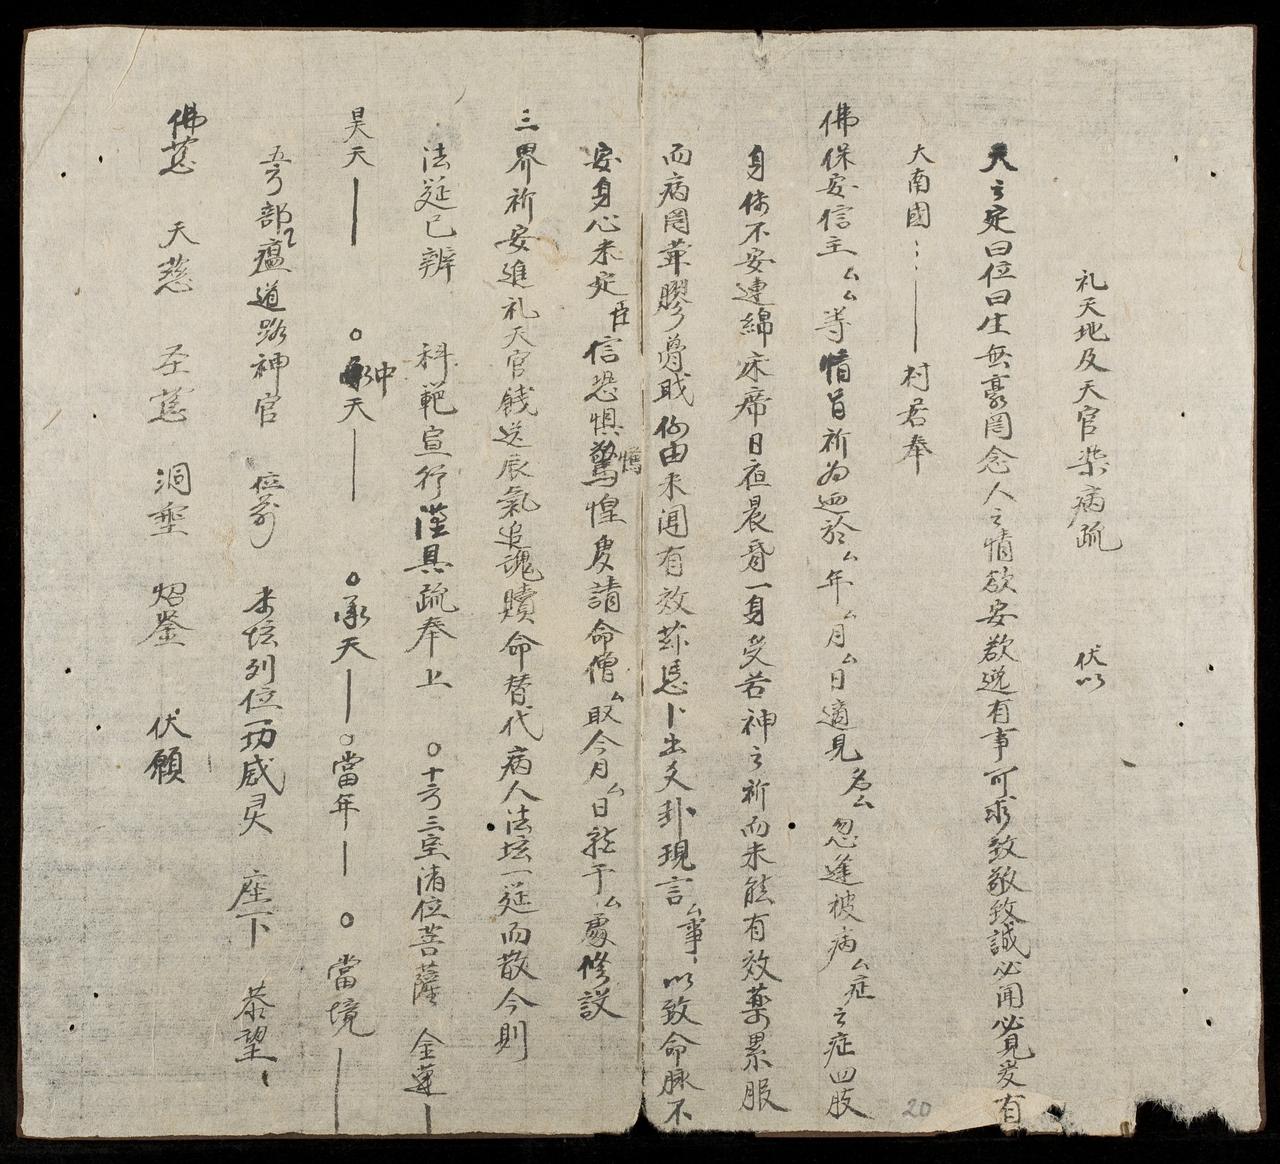 礼天地及天官染病疏　伏以
天之定曰位曰生無豪罔念人之情欲安欲逸有事可求致敬致誠必聞必見爰有
大南國　村居奉
佛保安信主厶厶等情旨祈為迺於厶年厶月厶日適見名厶忽逢被病厶症之症四肢
身体不安連綿床席日夜晨昏一身受苦神之祈而未能有效藥累服
而病罔　膠膏　由未聞有效茲憑卜出爻卦現言厶事以致命脉不
安身心未定臣信恐惧驚惶虔請命僧厶取今月厶日就于厶處修設
三界祈安進礼天官餞送辰氣追魂贖命替代病人法坛一筵而散今則
法筵已辦　科範宣行謹具疏奉上　○十方三宝渚位菩薩　金蓮
昊天　○中天　○承天　○當年　○當境
五方部瘟道路神官　位前　本坛列位一切威灵　座下　恭望
佛慈　天慈　圣慈　洞垂　炤鉴　伏願
20